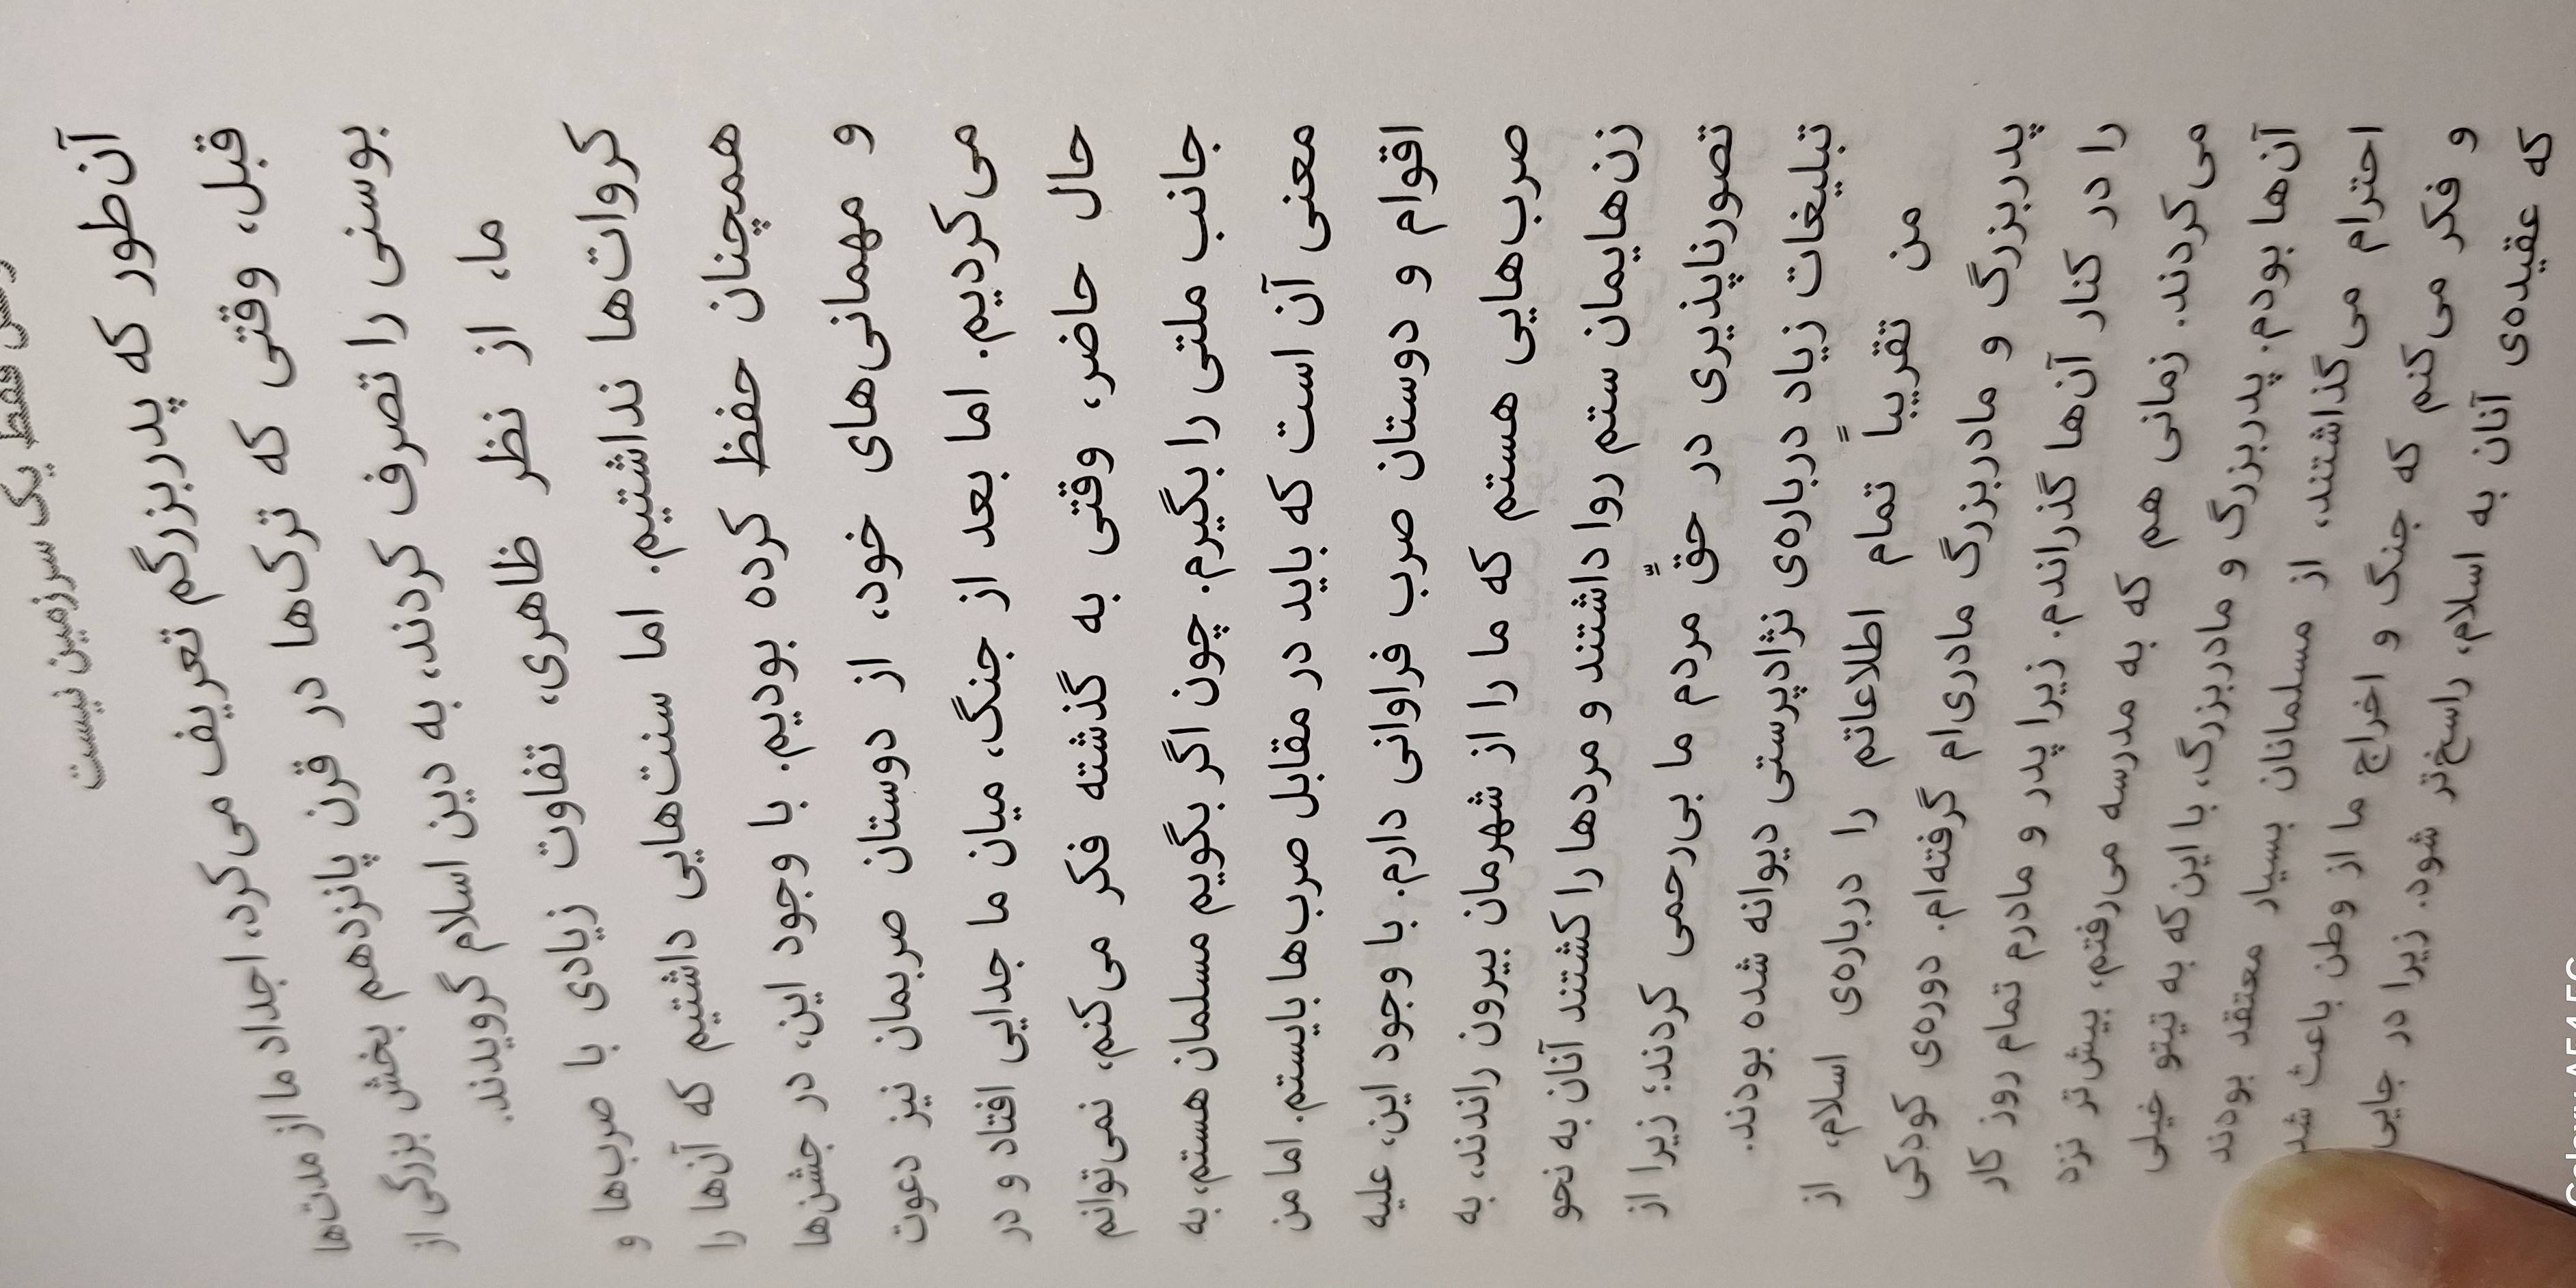 فقط یک سرزمین نیست
آن‌طور که پدربزرگم تعریف می‌کرد، اجداد ما از مدت‌ها
قبل، وقتی که ترک‌ها در قرن پانزدهم بخش بزرگی از
بوسنی را تصرف کردند، به دین اسلام گرویدند.
ما، از نظر ظاهری، تفاوت زیادی با صرب‌ها و
کروات‌ها نداشتیم. اما سنت‌هایی داشتیم که آن‌ها را
همچنان حفظ کرده بودیم. با وجود این، در جشن‌ها
و مهمانی‌های خود، از دوستان صربمان نیز دعوت
می‌کردیم. اما بعد از جنگ، میان ما جدایی افتاد و در
حال حاضر، وقتی به گذشته فکر می‌کنم، نمی‌توانم
جانب ملتی را بگیرم. چون اگر بگویم مسلمان هستم، به
معنی آن است که باید در مقابل صرب‌ها بایستم. اما من
اقوام و دوستان صرب فراوانی دارم. با وجود این، علیه
صرب‌هایی هستم که ما را از شهرمان بیرون راندند، به
زن‌هایمان ستم روا داشتند و مردها را کشتند آنان به نحو
تصورناپذیری در حقّ مردم ما بی‌رحمی کردند؛ زیرا از
تبلیغات زیاد درباره‌ی نژادپرستی دیوانه شده بودند.
من تقریباً تمام اطلاعاتم را درباره‌ی اسلام، از
پدربزرگ و مادربزرگ مادری‌ام گرفته‌ام. دوره‌ی کودکی
را در کنار آن‌ها گذراندم. زیرا پدر و مادرم تمام روز کار
می‌کردند. زمانی هم که به مدرسه می‌رفتم، بیش‌تر نزد
آن‌ها بودم. پدربزرگ و مادربزرگ، با این‌که به تیتو خیلی
احترام می‌گذاشتند، از مسلمانان بسیار معتقد بودند
و فکر می‌کنم که جنگ و اخراج ما از وطن باعث شد
که عقیده‌ی آنان به اسلام، راسخ‌تر شود. زیرا در جایی